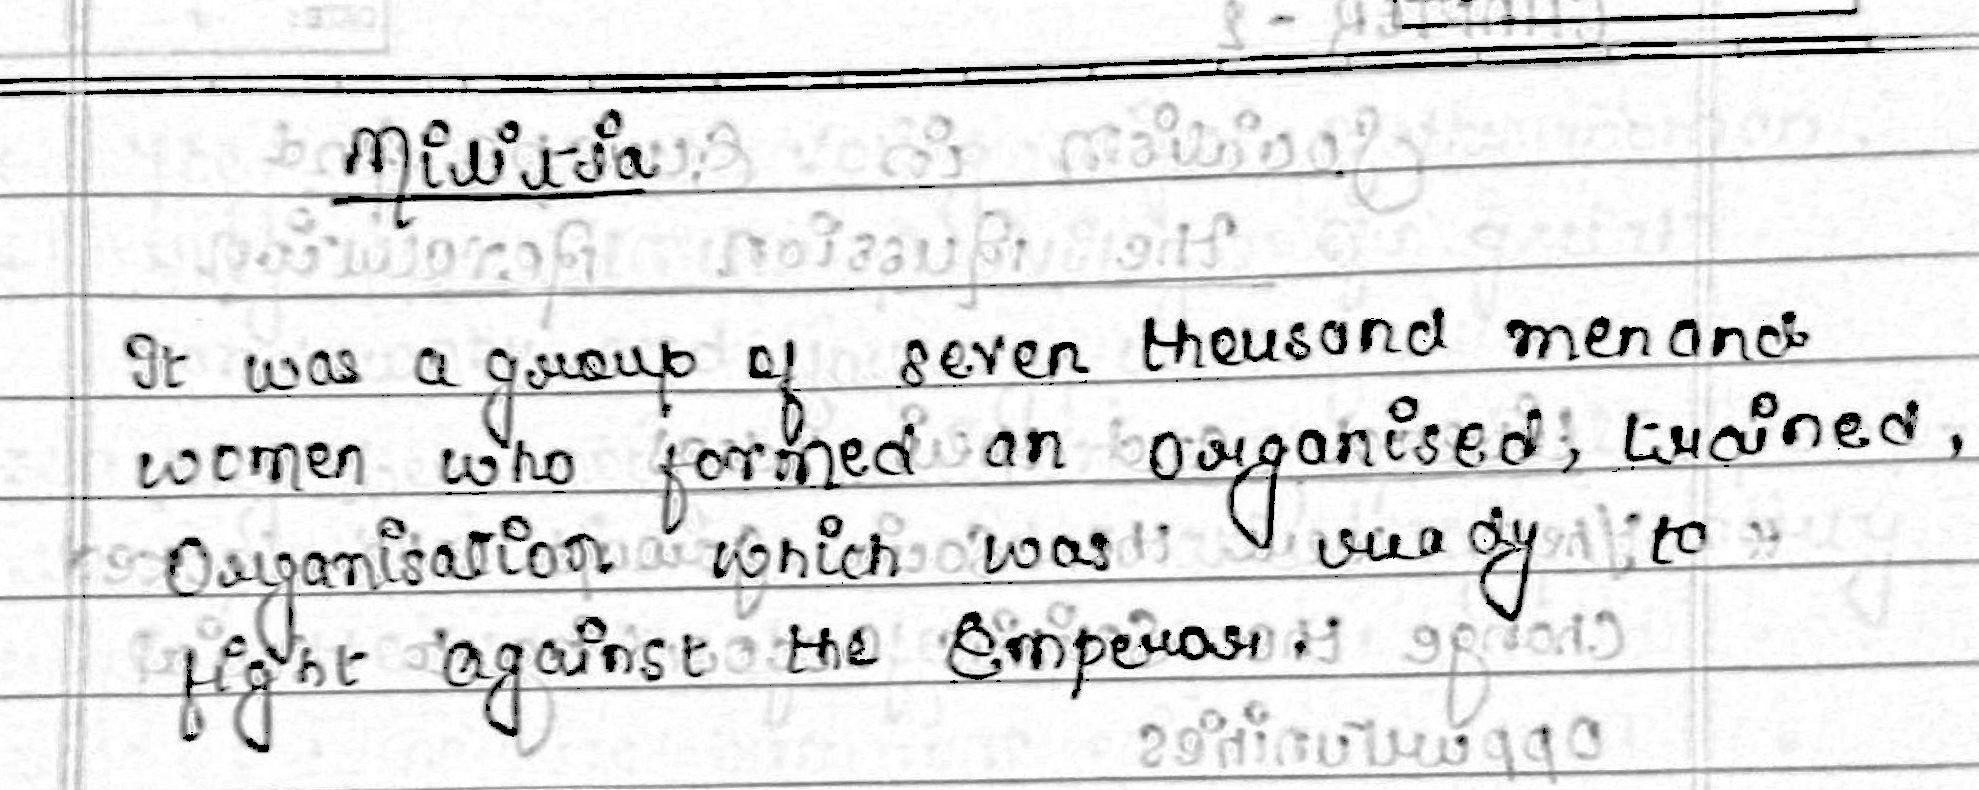 Militia
It was a group of seven thousand men and
women who formed an organised, trained,
Organisation which was ready to
fight against the Emperor.